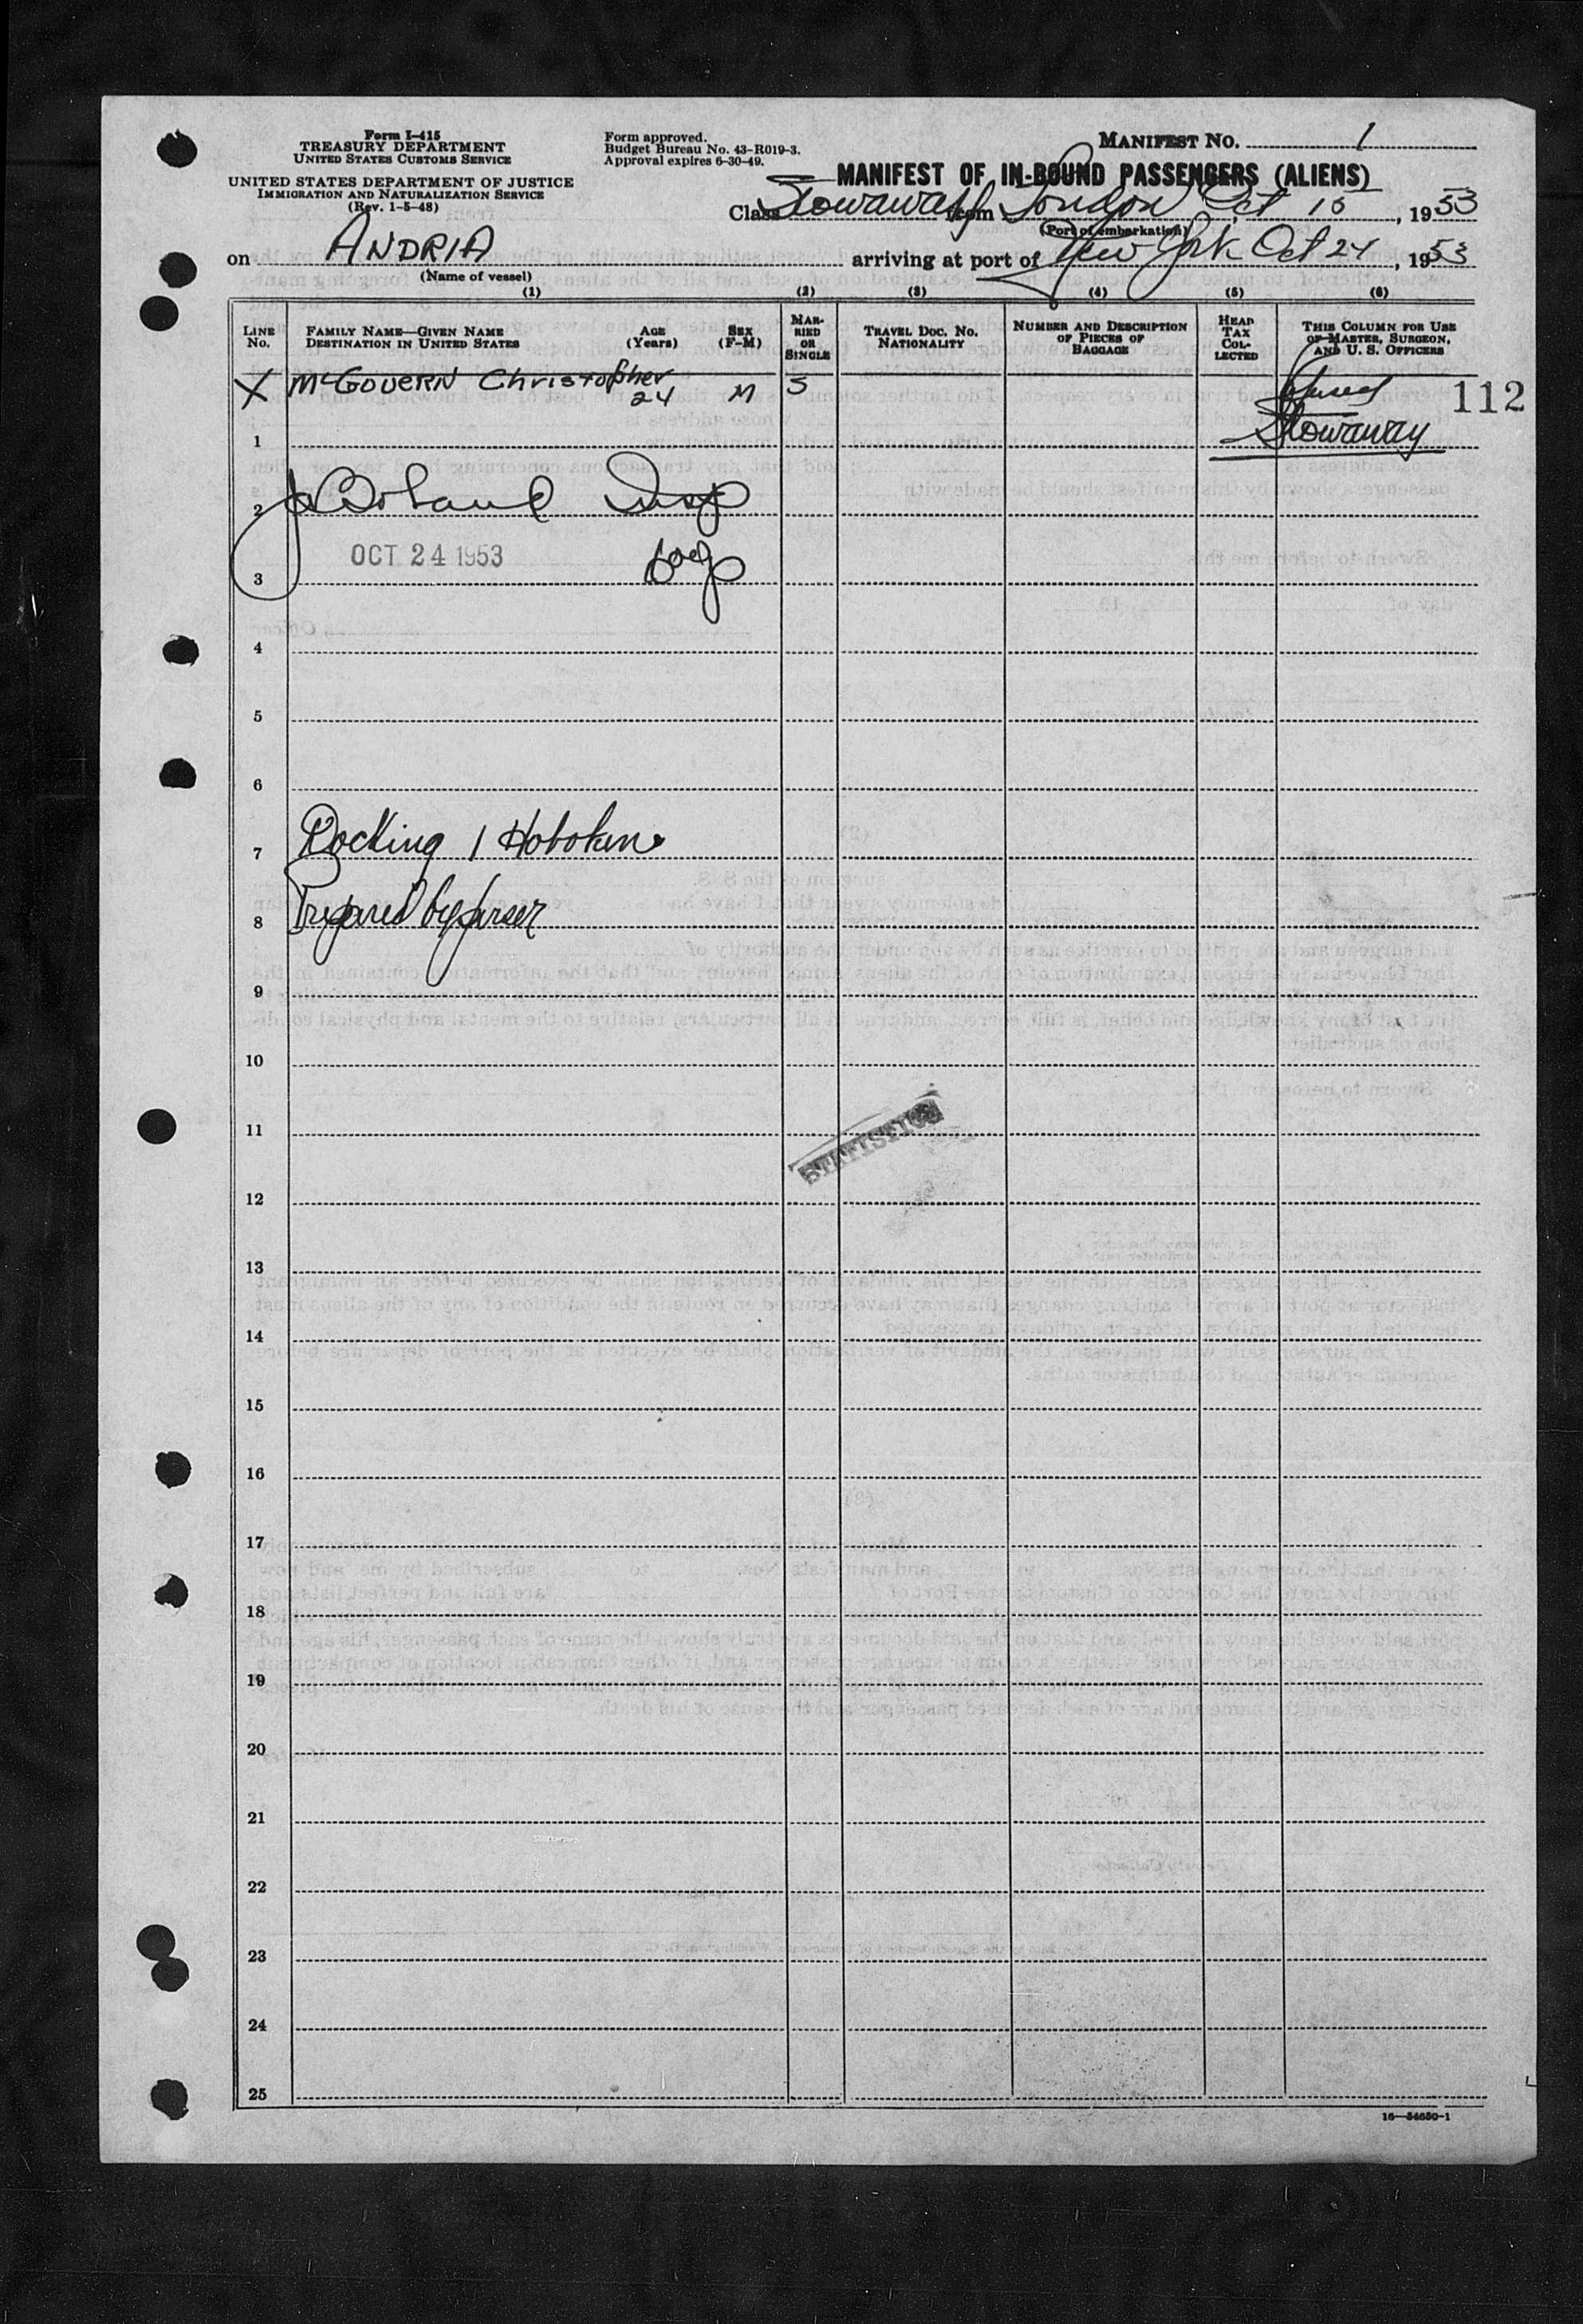 Form I-415
TREASURY DEPARTMENT
UNITED STATES CUSTOMS SERVICE
UNITED STATES DEPARTMENT OF JUSTICE
IMMIGRATION AND NATURALIZATION SERVICE
(Rev. 1-5-48)
Form approved.
Budget Bureau No. 43-R019-3.
Approval expires 6-30-49.
MANIFEST NO. 1
MANIFEST OF IN-BOUND PASSENGERS (ALIENS)
Class Stowaway from London Oct 15, 1953
(Port of embarkation)
on ANDRIA arriving at port of New York Oct 24, 1953
(Name of vessel)
(1) (2) (3) (4) (5) (6)
LINE No. FAMILY NAME—GIVEN NAME DESTINATION IN UNITED STATES AGE (Years) SEX (F-M) MARRIED OR SINGLE TRAVEL DOC. NO. NATIONALITY NUMBER AND DESCRIPTION OF PIECES OF BAGGAGE HEAD TAX COLLECTED THIS COLUMN FOR USE OF MASTER, SURGEON, AND U. S. OFFICERS
X McGOVERN Christopher 24 M S 112
1 Stowaway
2 Insp
3 OCT 24 1953
4
5
6
7 Docking 1 Hoboken
8 Prepared by purser
9
10
11 STATISTICS
12
13
14
15
16
17
18
19
20
21
22
23
24
25
16—54650-1